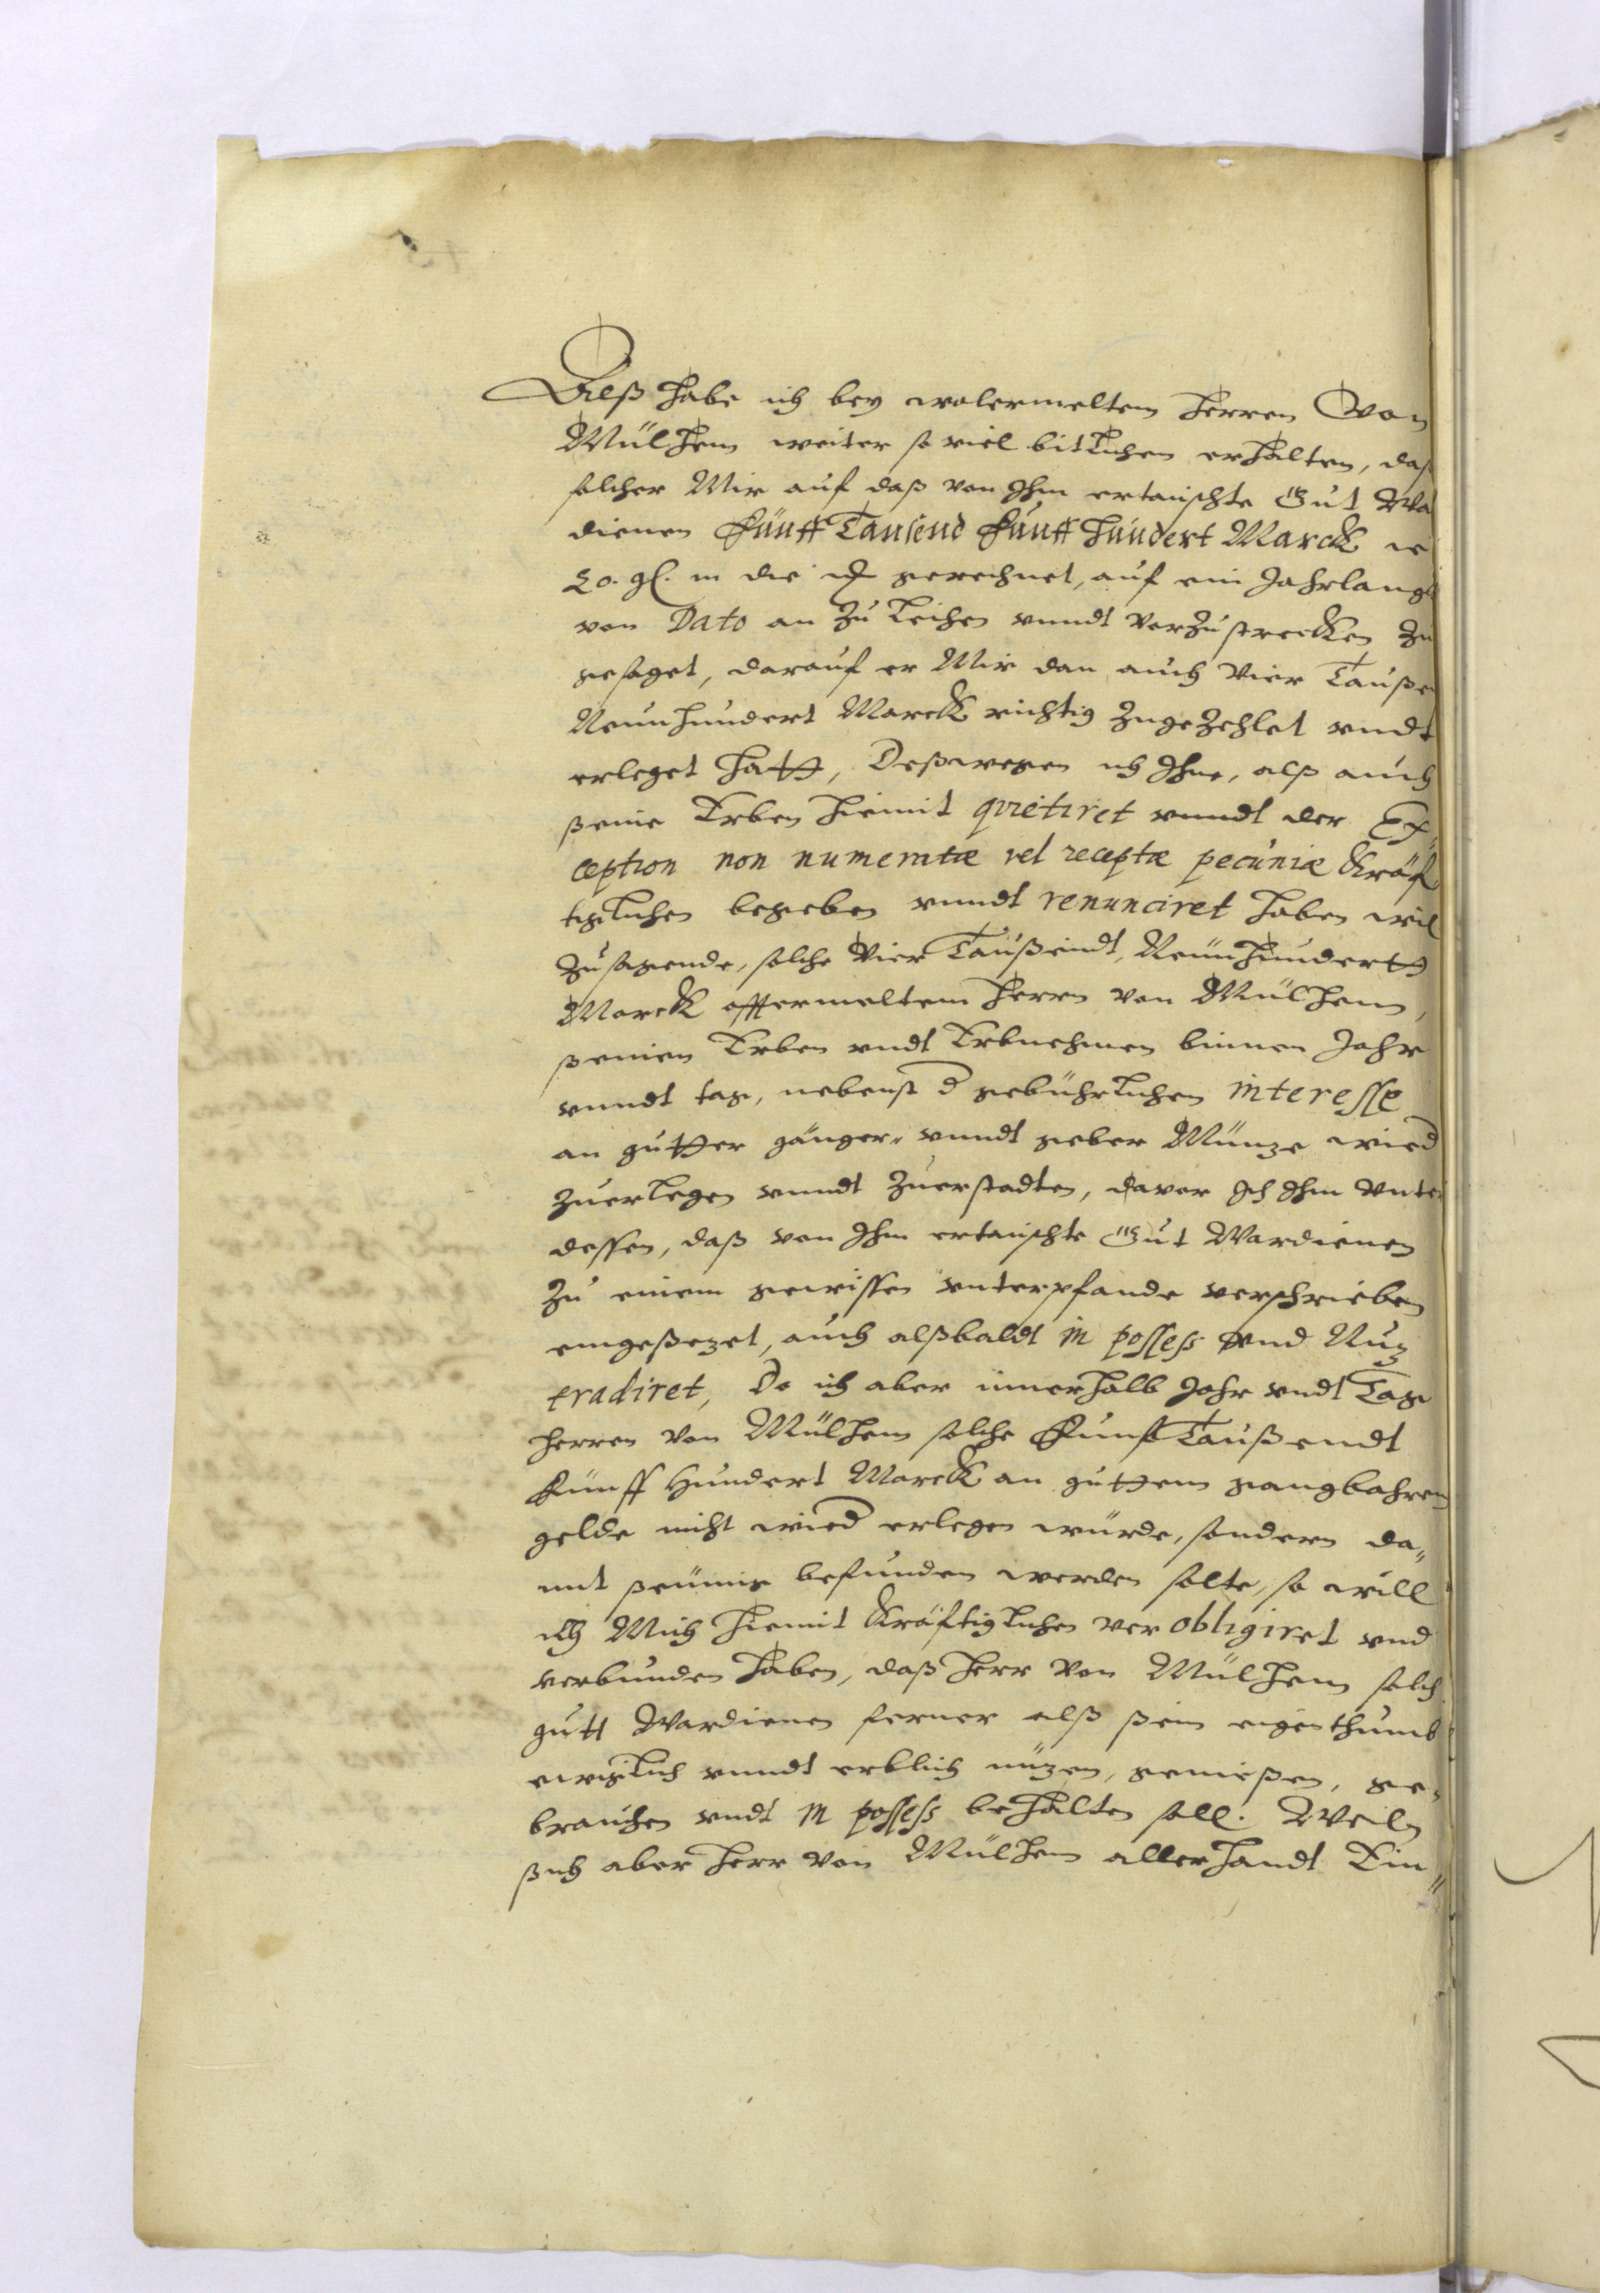 Alß habe ich bey wolermeltem Herren Von
Mülhem weiter so viel bitlichen erhalten, daß
solcher Mir auf daß von Ihm ertauschte Gut Wa
dienen Fünff Tausend Fünff hundert Marck ie
20. gl. in die gerechnet, auf ein Jahrlang
von Dato an zu leihen unndt vorzustrecken zu
gesaget, darauf er Mir dan auch Vier Tauße
Neunhundert Marck richtig zugezehlet undt
erleget hatt, Deßwegen ich Ihne, alß auch
ßeine Erben hiemit qvietiret unndt der Ex
ception non numeratæ vel receptæ pecuniæ kräf
tiglichen begeben unndt renunciret haben wil
zusagende, solche Vier Taußendt, Neunhundertt
Marck offtermeltem Herrn von Mülhem,
ßeinen Erben undt Erbnehmen binnen Jahr
unndt tag, nebenst d gebührlichen interesse
an gutter gänger- unndt geber Müntze wied
zuerlegen unndt zuerstadten, davor Ich Ihm unte
dessen, daß von Ihm ertauschte Gut Wardienen
zu einem gewissen unterpfande verschrieben
eingeßezet, auch alßbaldt in possess und Nuz
tradiret, Do ich aber innerhalb Jahr undt Tag
Herren von Mülhem solche Funf Taußendt
Fünff Hundert Marck an guttem gangbahren
gelde nicht wied erlegen würde, sondern da„
mit ßeümig befunden werden solte, so will
ich Mich hiemit kräftiglichen verobligiret und
verbunden haben, daß Herr von Mülhem solch
gutt Wardienen ferner alß ßein eigenthumb
ewiglich unndt erblich nüzen, genießen, ge„
brauchen undt in possess behalten soll. Weiln
ßich aber Herr von Mülhem allerhandt Ein„